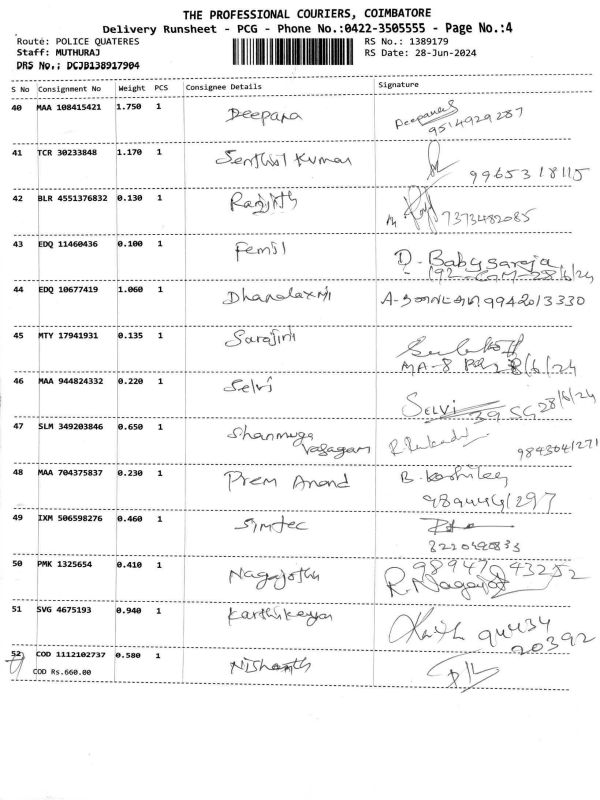 THE PROFESSIONAL COURIERS, COIMBATORE
Delivery Runsheet - PCG - Phone No.:0422-3505555 - Page No.:4
Route: POLICE QUATERES RS No.: 1389179
Staff: MUTHURAJ RS Date: 28-Jun-2024
DRS No.: DCJB138917904
S No Consignment No Weight PCS Consignee Details Signature
40 MAA 108415421 1.750 1 Deepana Deepana
9514929287
41 TCR 30233848 1.170 1 Senthil Kumar
9965318115
42 BLR 4551376832 0.130 1 Ranjith 7373482085
43 EDQ 11460436 0.100 1 Femil D. Baby saroja
28/6/24
44 EDQ 10677419 1.060 1 Dhanalaxmi
45 MTY 17941931 0.135 1 Sarojini
MA-8 28/6/24
46 MAA 944824332 0.220 1 Selvi
SELVI 39 SG 28/6/24
47 SLM 349203846 0.650 1 Shanmuga
9843041271
48 MAA 704375837 0.230 1 Prem Anand
49 IXM 506598276 0.460 1 Simtec
50 PMK 1325654 0.410 1 Nagajothi 98947 43252
R. Nagajothi
51 SVG 4675193 0.940 1 Karthikeyan 94434
20392
52 COD 1112102737 0.580 1 Nishanth
COD Rs.660.00